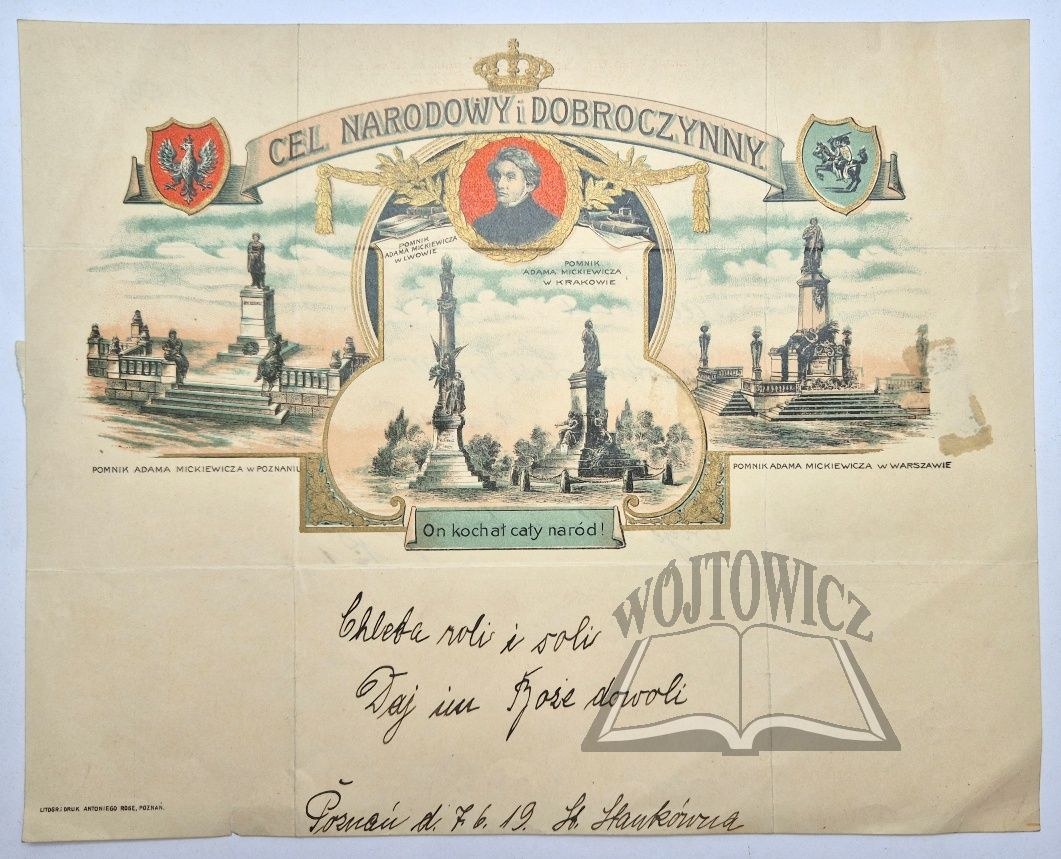 CEL NARODOWY i DOBROCZYNNY.
POMNIK
ADAMA MICKIEWICZA
W LWOWIE
POMNIK
ADAMA MICKIEWICZA
W KRAKOWIE
POMNIK ADAMA MICKIEWICZA W POZNANIU
POMNIK ADAMA MICKIEWICZA W WARSZAWIE
On kochał cały naród!
WÓJTOWICZ
Chleba roli i soli
Daj im Boże dowoli
LITOGR. i DRUK ANTONIEGO ROSE, POZNAŃ.
Poznań d. 7. 6. 19. St. Stankówna